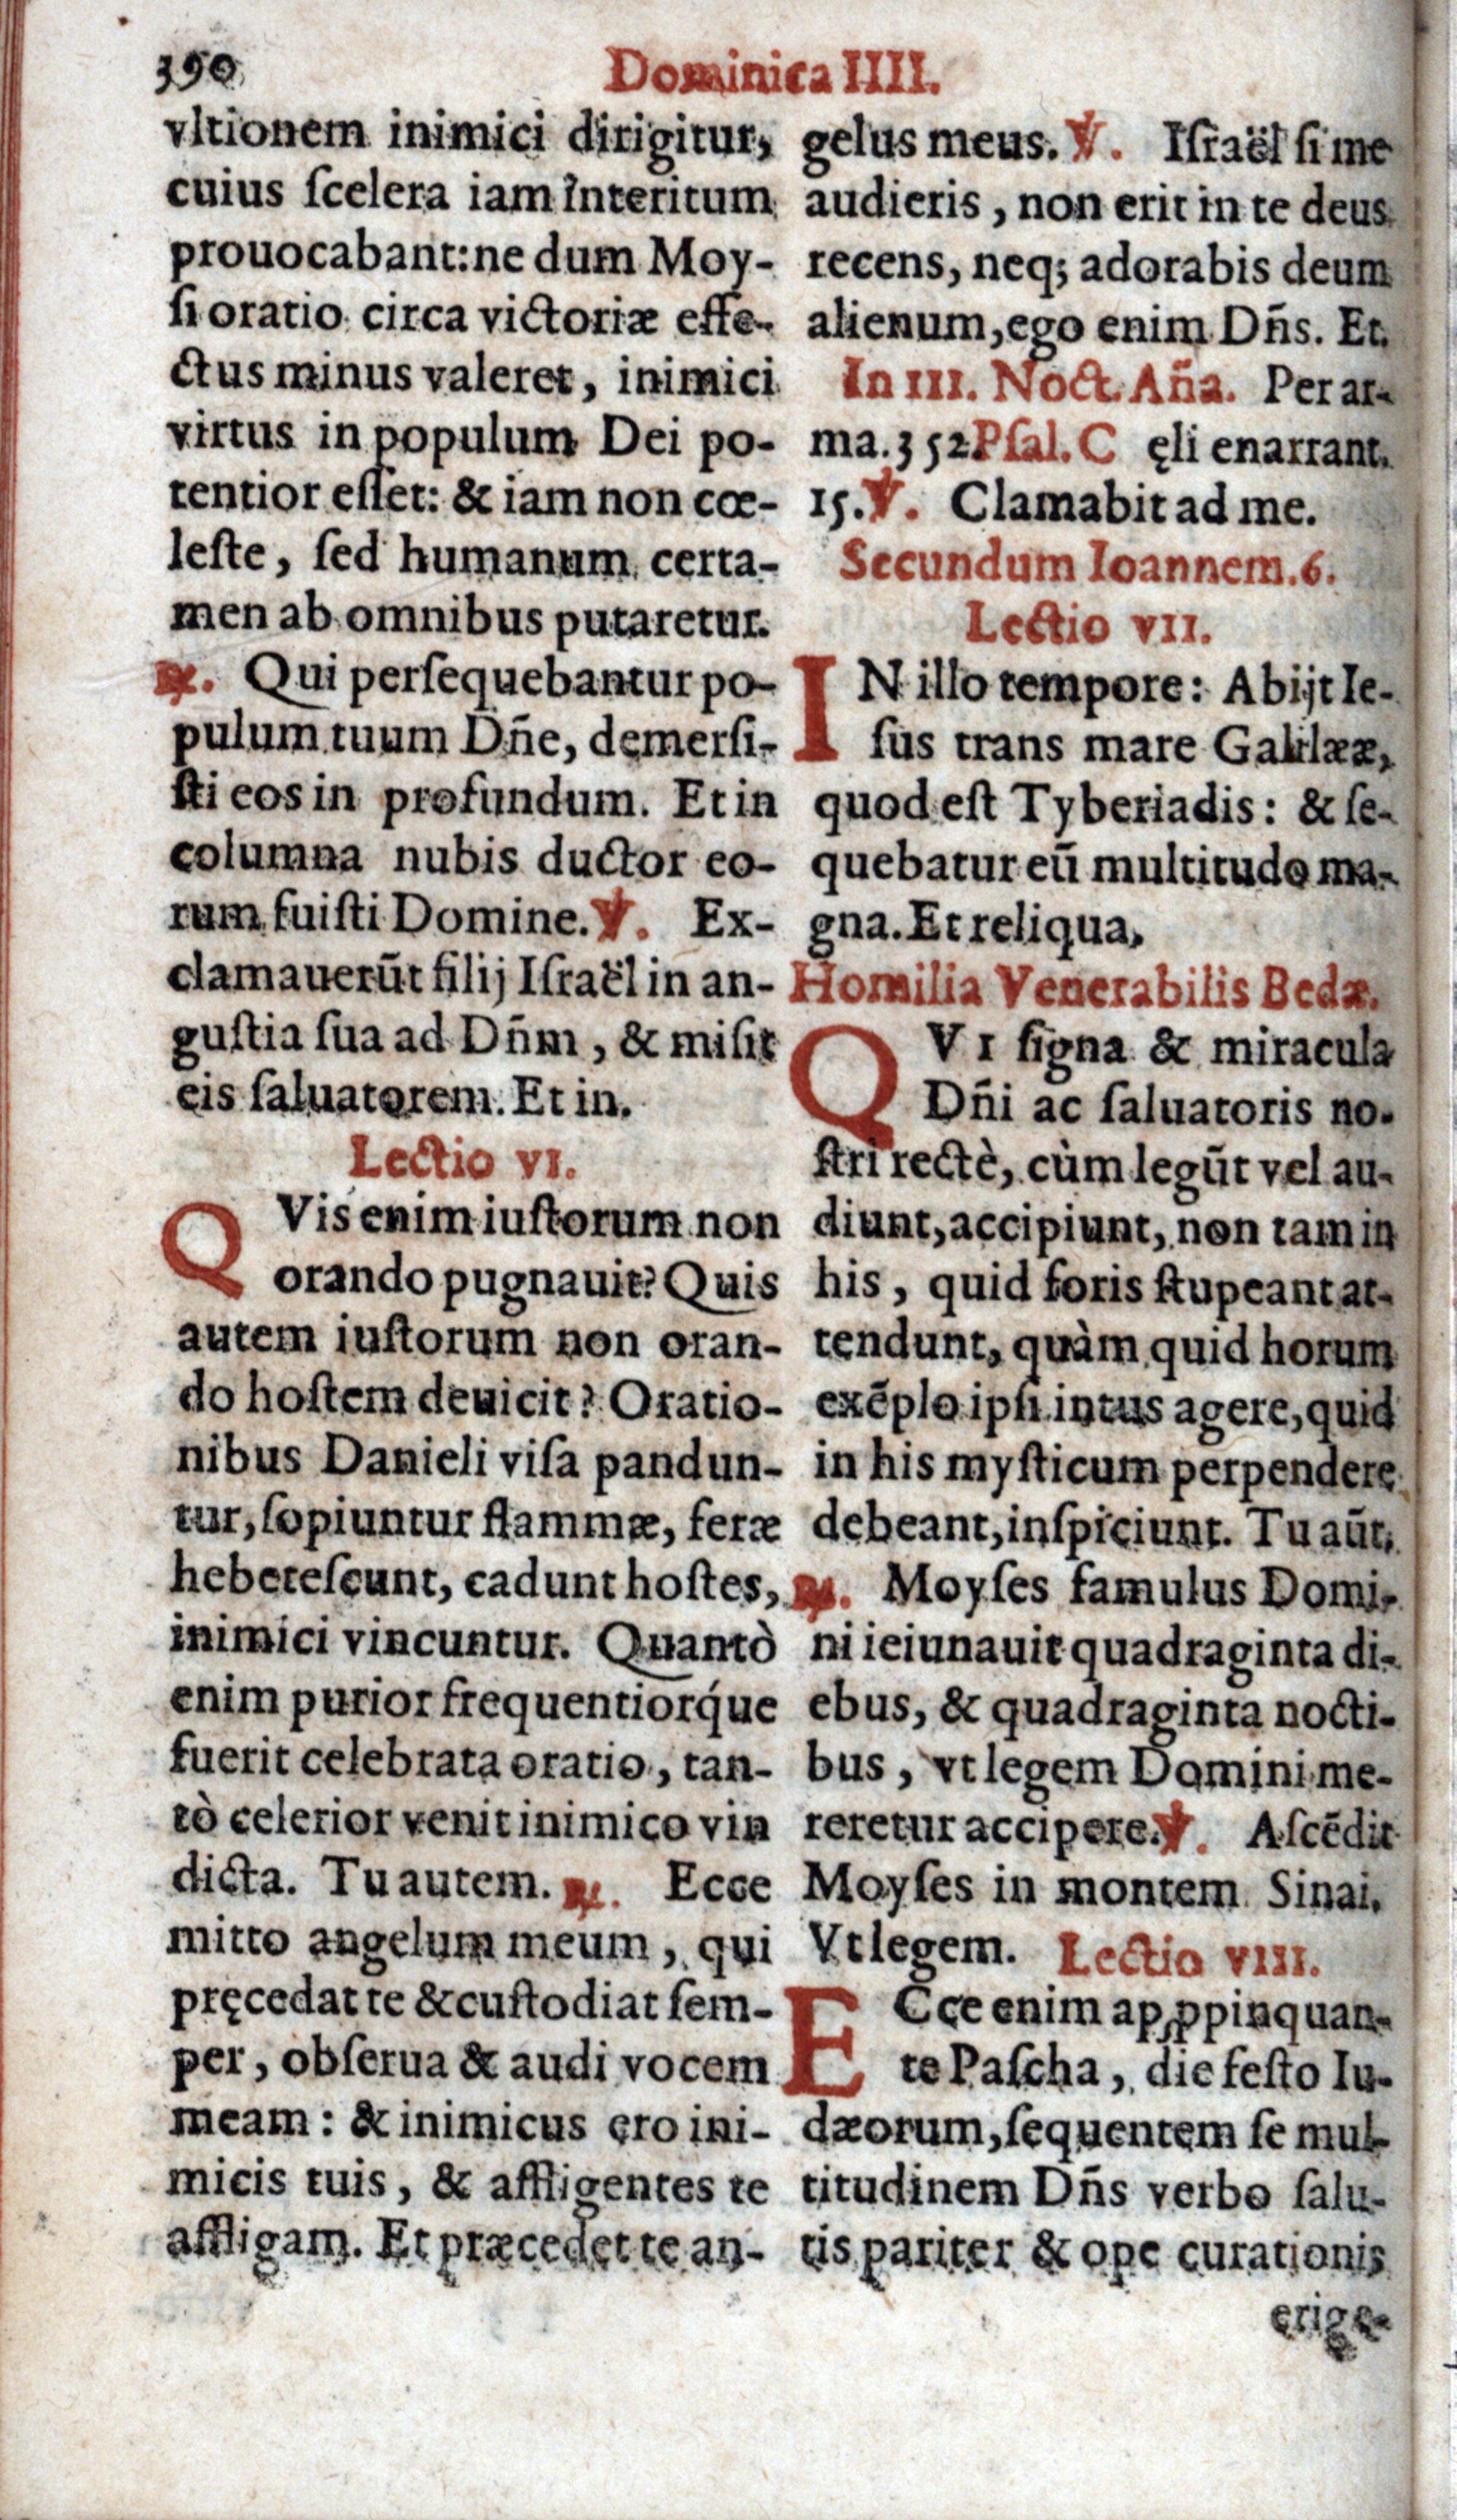 390
Dominica IIII.
vltionem inimici dirigitur,
cuius ſcelera iam interitum
prouocabant: ne dum Moy-
ſi oratio circa victoriæ effe-
ctus minus valeret, inimici
virtus in populum Dei po-
tentior eſſet: & iam non cœ-
leſte, ſed humanum certa-
men ab omnibus putaretur.
℟. Qui perſequebantur po-
pulum tuum Dñe, demerſi-
ſti eos in profundum. Et in
columna nubis ductor eo-
rum fuiſti Domine. ℣. Ex-
clamauerūt filij Iſraël in an-
guſtia ſua ad Dñm, & miſit
eis ſaluatorem. Et in.
Lectio VI.
QVis enim iuſtorum non
orando pugnauit? Quis
autem iuſtorum non oran-
do hoſtem deuicit? Oratio-
nibus Danieli viſa pandun-
tur, ſopiuntur flammæ, feræ
hebeteſcunt, cadunt hoſtes,
inimici vincuntur. Quantò
enim purior frequentiorq́ue
fuerit celebrata oratio, tan-
tò celerior venit inimico vin
dicta. Tu autem. ℟. Ecce
mitto angelum meum, qui
pręcedat te & cuſtodiat ſem-
per, obſerua & audi vocem
meam: & inimicus ero ini-
micis tuis, & affligentes te
affligam. Et præcedet te an-
gelus meus. ℣. Iſraël ſi me
audieris, non erit in te deus
recens, neq; adorabis deum
alienum, ego enim Dñs. Et.
In III. Noct. Aña. Per ar-
ma. 352 Pſal. Cęli enarrant.
15. ℣. Clamabit ad me.
Secundum Ioannem. 6.
Lectio VII.
IN illo tempore: Abijt Ie-
ſus trans mare Galilææ,
quod eſt Tyberiadis: & ſe-
quebatur eū multitudo ma-
gna. Et reliqua.
Homilia Venerabilis Bedæ.
QVI ſigna & miracula
Dñi ac ſaluatoris no-
ſtri rectè, cùm legūt vel au-
diunt, accipiunt, non tam in
his, quid foris ſtupeant at-
tendunt, quàm quid horum
exēplo ipſi intus agere, quid
in his myſticum perpendere
debeant, inſpiciunt. Tu aūt.
℟. Moyſes famulus Domi-
ni ieiunauit quadraginta di-
ebus, & quadraginta nocti-
bus, vt legem Domini me-
reretur accipere. ℣. Aſcēdit
Moyſes in montem Sinai.
Vt legem. Lectio VIII.
ECce enim apꝓpinquan-
te Paſcha, die feſto Iu-
dæorum, ſequentem ſe mul-
titudinem Dñs verbo ſalu-
tis pariter & ope curationis
erige-